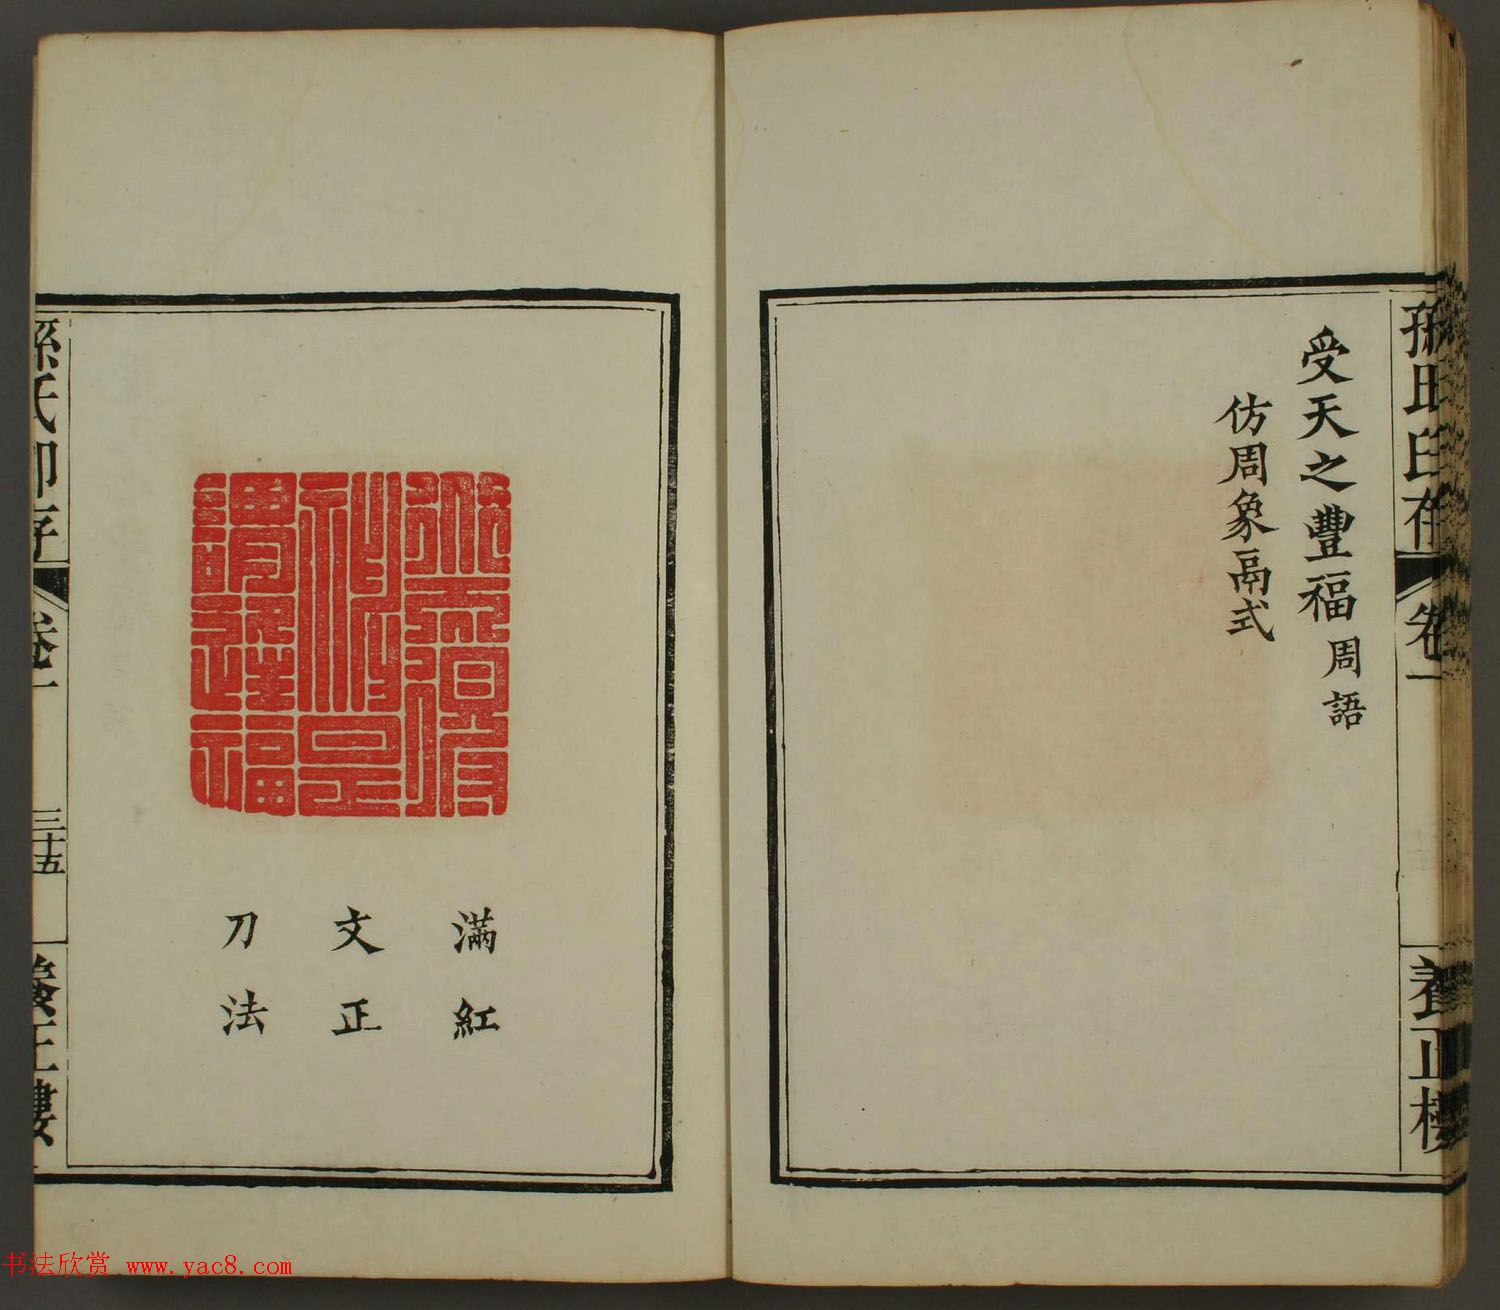 孫氏印存
卷一
養正樓
受天之豐福周語
仿周象鬲式
滿紅
文正
刀法
孫氏印存
卷一
三十五
養正樓
书法欣赏 www.yac8.com